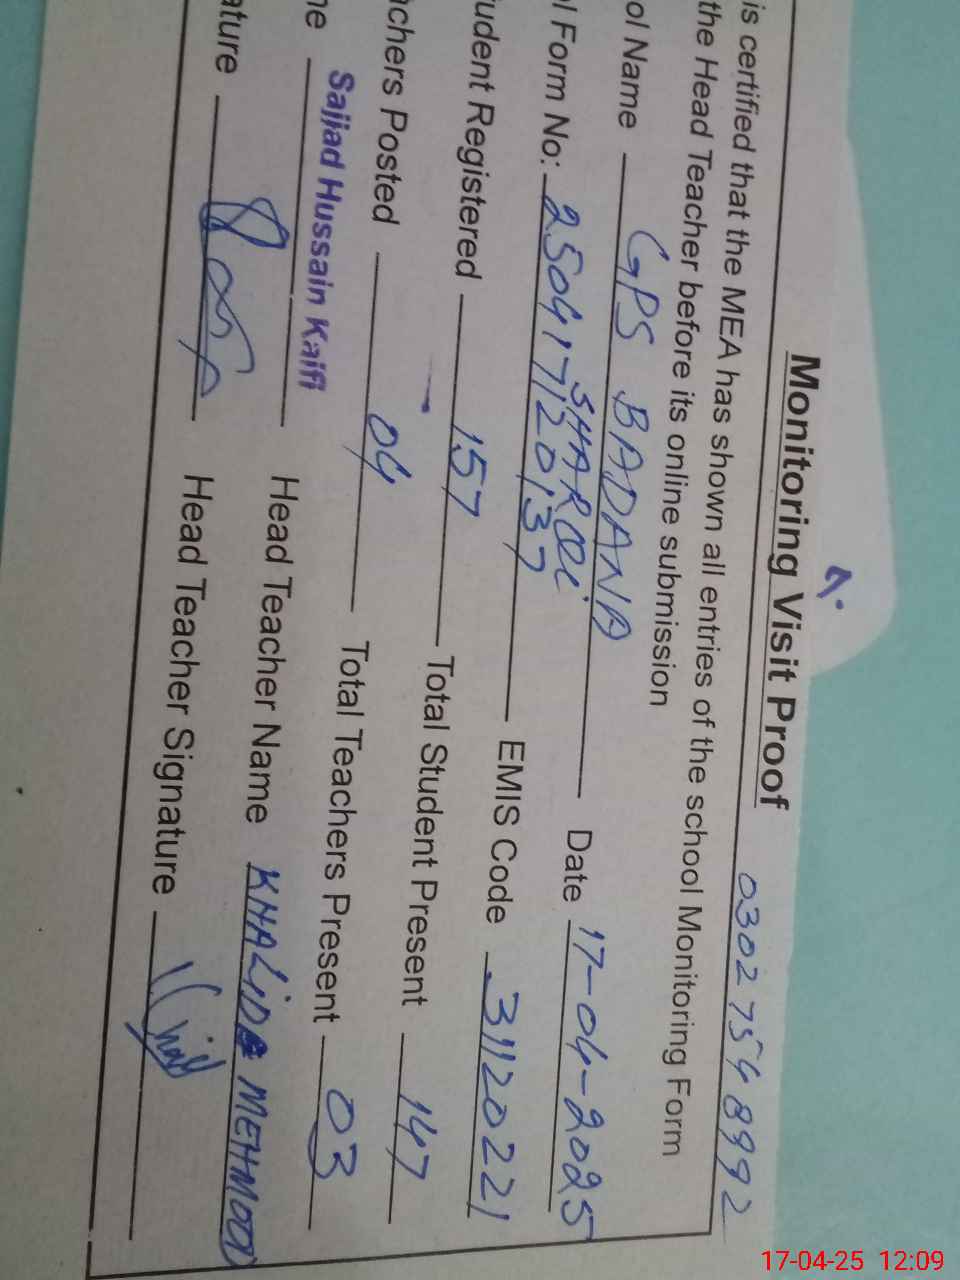 Monitoring Visit Proof 0302 754 8992
is certified that the MEA has shown all entries of the school Monitoring Form
the Head Teacher before its online submission
ol Name GPS BADANA Date 17-04-2025
SHARQI
l Form No: 250417120137 EMIS Code 31120221
udent Registered 157 Total Student Present 147
achers Posted 04 Total Teachers Present 03
me Sajjad Hussain Kaifi Head Teacher Name KHALID MEHMOOD
ature Head Teacher Signature
17-04-25 12:09